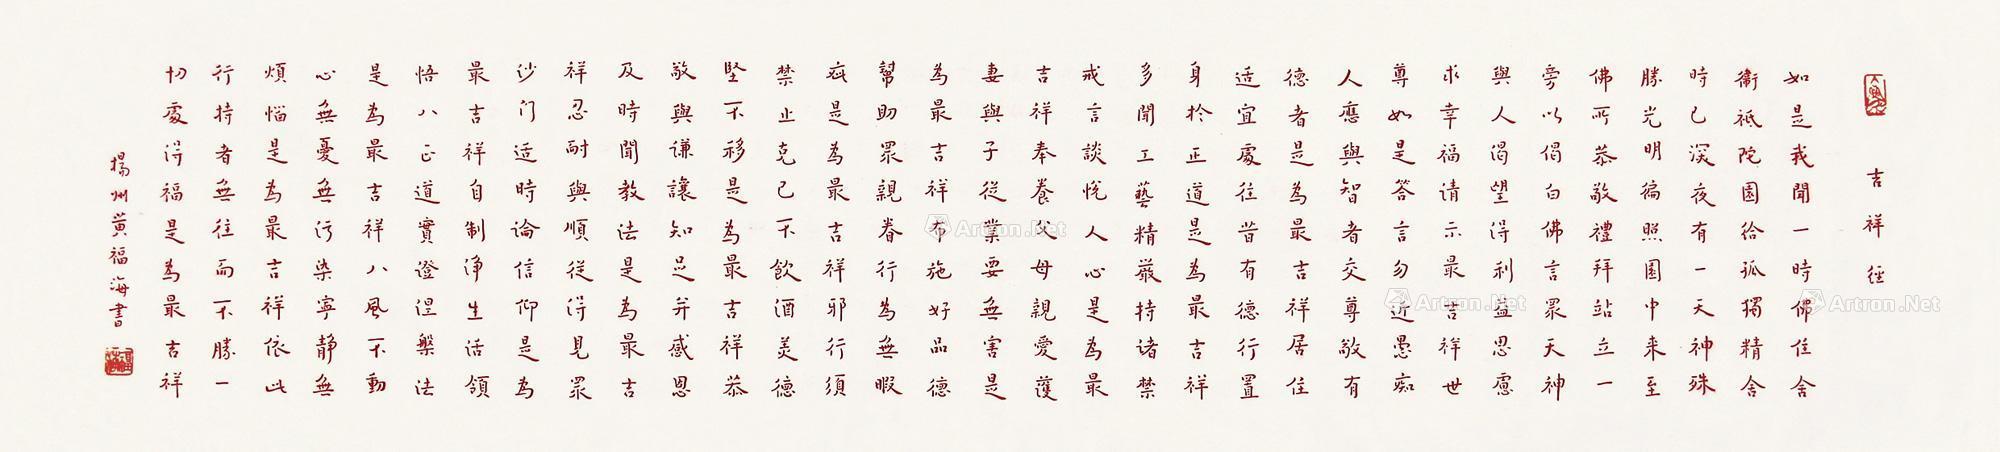 吉祥經
如是我聞一時佛住舍
衞祇陀園給孤獨精舍
時已深夜有一天神殊
勝光明徧照園中来至
佛所恭敬禮拜站立一
旁以偈白佛言眾天神
與人偈望得利益思慮
求幸福请示最吉祥世
尊如是答言勿近愚痴
人應與智者交尊敬有
德者是為最吉祥居住
适宜處往昔有德行置
身於正道是為最吉祥
多聞工藝精嚴持诸禁
戒言談悅人心是為最
吉祥奉養父母親愛護
妻與子從業要無害是
為最吉祥布施好品德
幫助眾親眷行為無暇
疵是為最吉祥邪行須
禁止克己不飲酒美德
堅不移是為最吉祥恭
敬與谦讓知足并感恩
及時聞教法是為最吉
祥忍耐與順從得見眾
沙门适時論信仰是為
最吉祥自制淨生活領
悟八正道實證涅槃法
是為最吉祥八風不動
心無憂無污染寧静無
煩惱是為最吉祥依此
行持者無往而不勝一
切處得福是為最吉祥
揚州黄福海書
Artron.Net
Artron.Net
Artron.Net